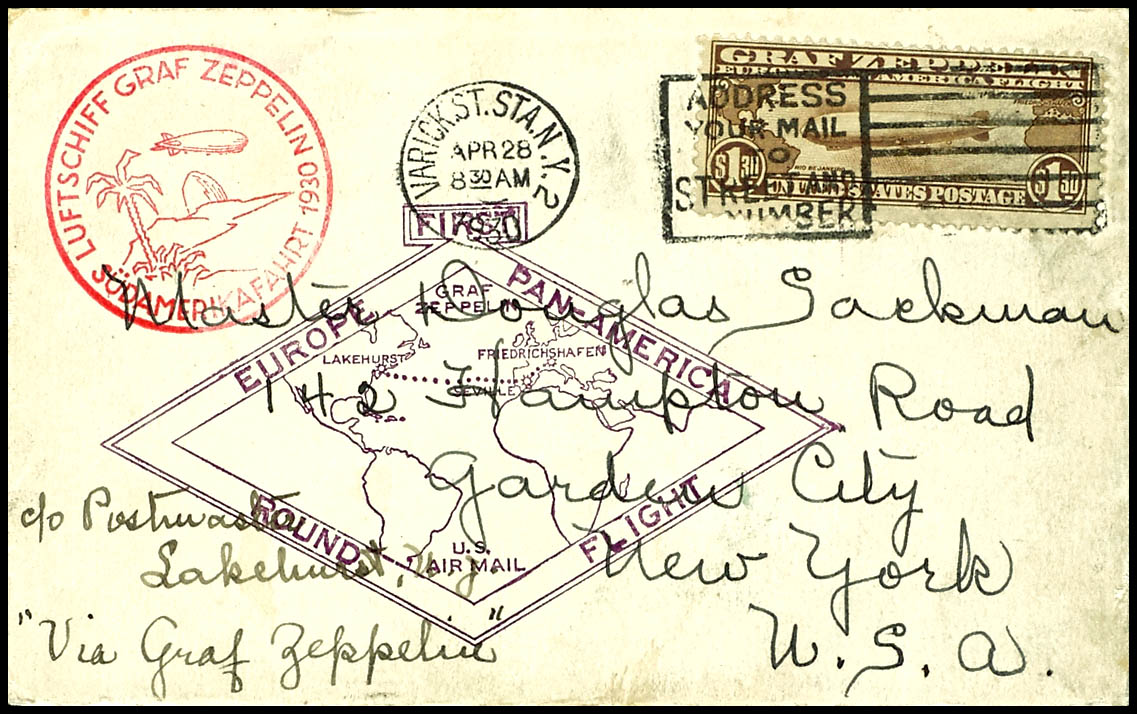 LUFTSCHIFF GRAF ZEPPELIN
SÜDAMERIKAFAHRT 1930
VARICK ST. STA. N.Y. 2
APR 28
8 30 AM
1930
ADDRESS
YOUR MAIL
TO
STREET AND
NUMBER
GRAF ZEPPELIN
EUROPE PAN-AMERICA FLIGHT
$1.30 $1.30
UNITED STATES POSTAGE
FIRST
EUROPE PAN-AMERICA
ROUND FLIGHT
GRAF
ZEPPELIN
LAKEHURST
FRIEDRICHSHAFEN
SEVILLE
U.S.
AIR MAIL
Master Douglas Sackman
142 Hampton Road
Garden City
New York
U. S. A.
c/o Postmaster
Lakehurst, N.J.
"Via Graf Zeppelin"